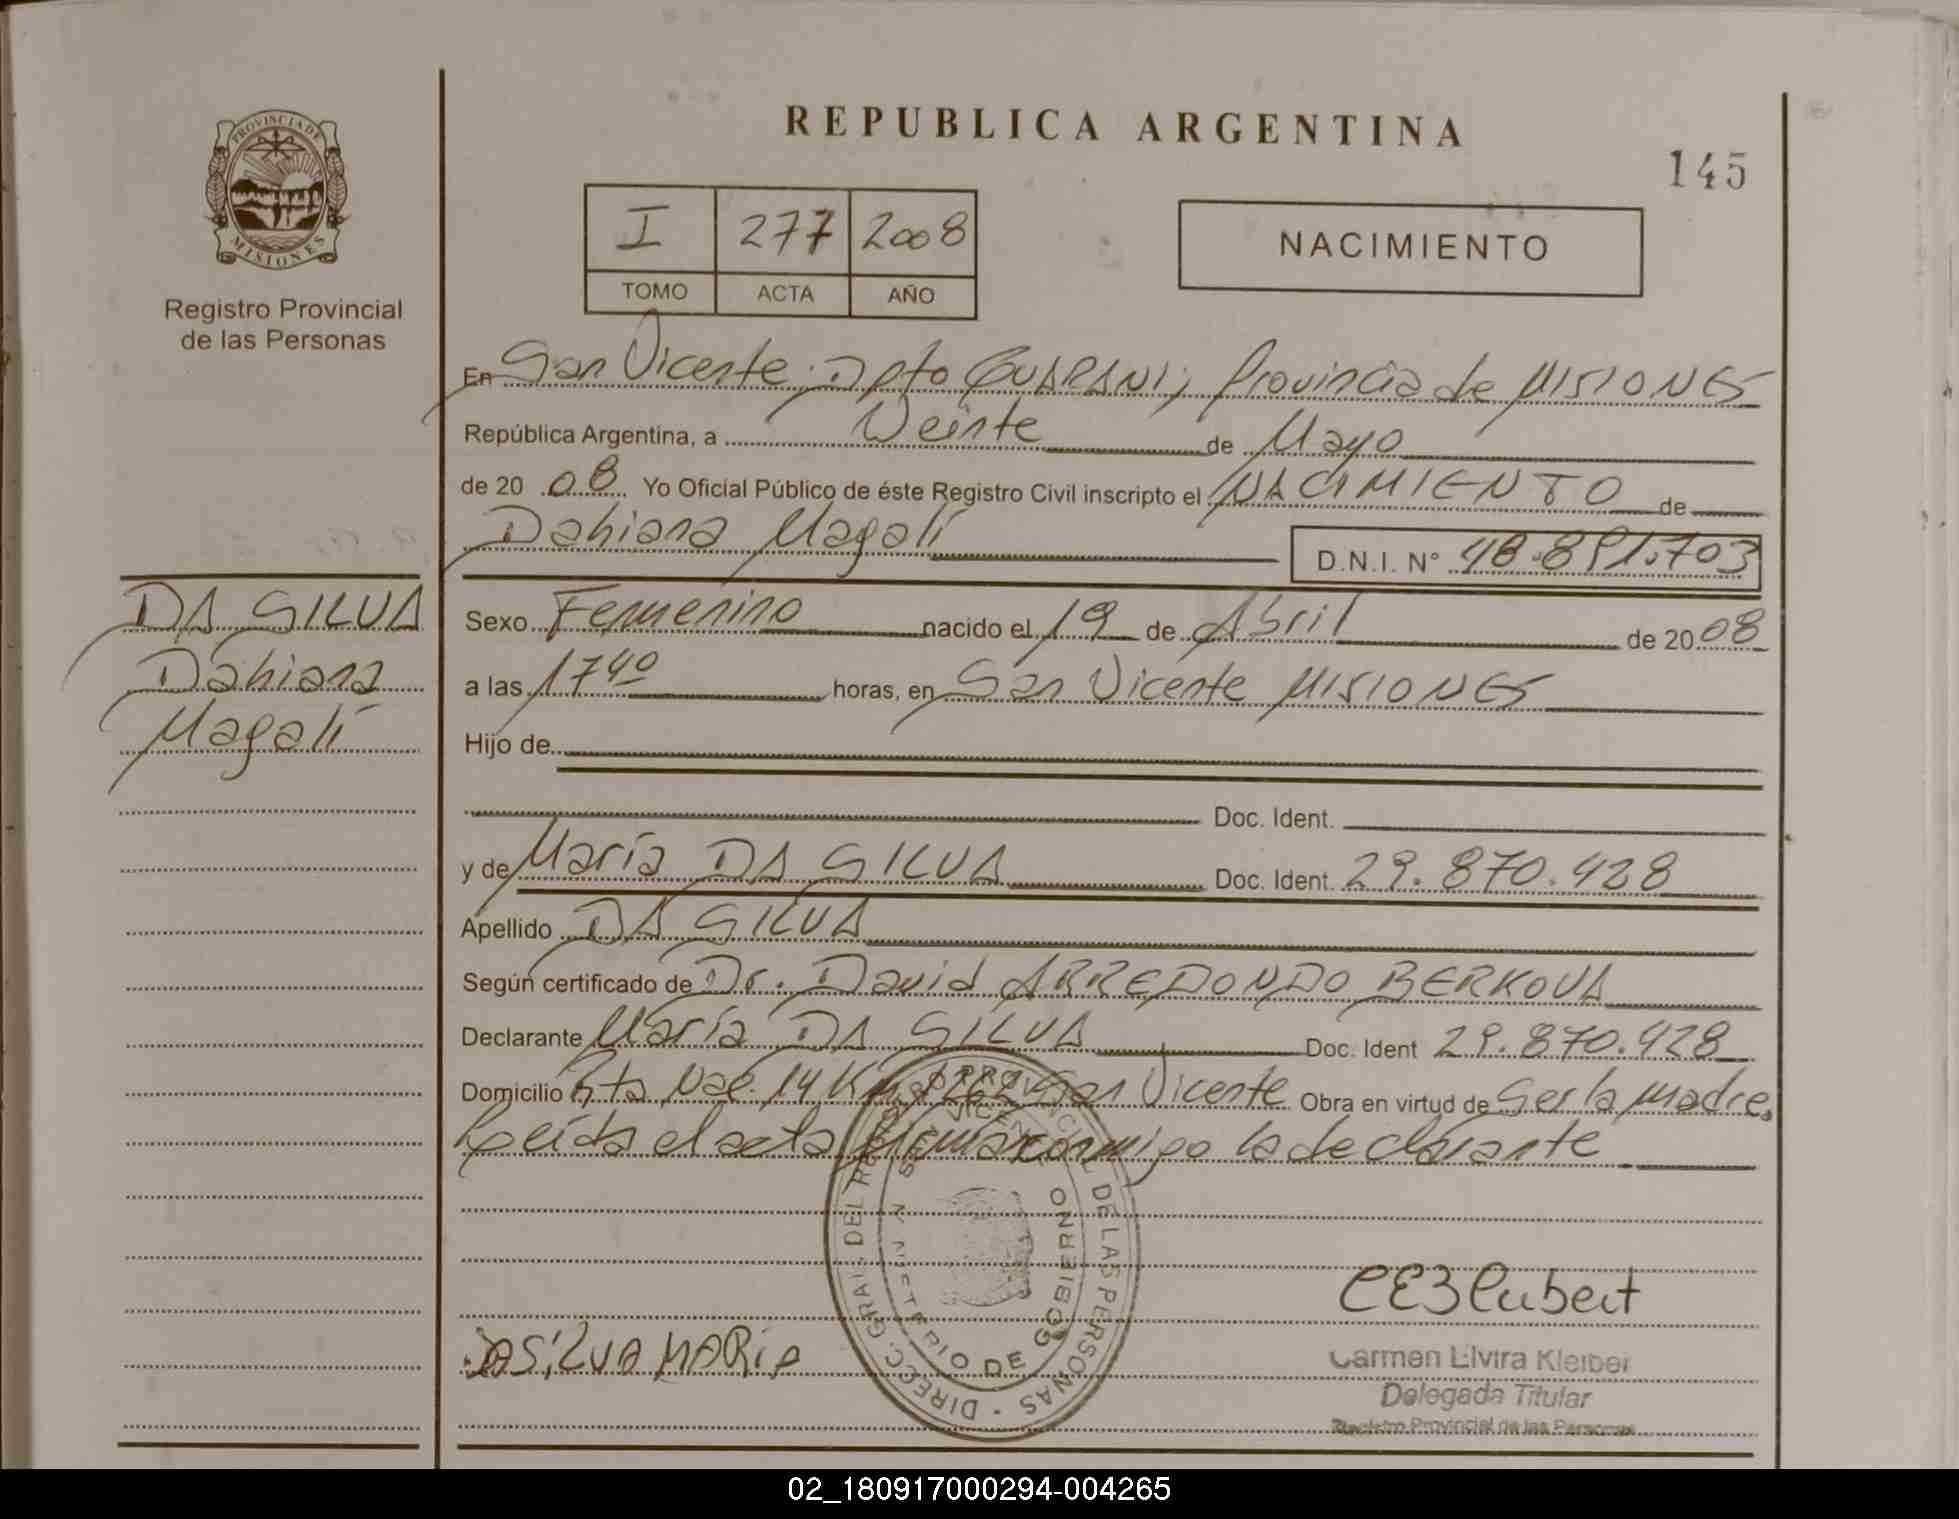 REPUBLICA ARGENTINA
145
PROVINCIA DE
MISIONES
Registro Provincial
de las Personas
I 277 2008
TOMO ACTA AÑO
NACIMIENTO
En San Vicente Dpto GUARANI, Provincia de MISIONES
República Argentina, a Veinte de Mayo
de 20 08 Yo Oficial Público de éste Registro Civil inscripto el NACIMIENTO de
Dahiana Magalí D.N.I. N° 48.891.703
DA SILVA
Dahiana
Magalí
Sexo Femenino nacido el 19 de Abril de 20 08
a las 17 40 horas, en San Vicente MISIONES
Hijo de
Doc. Ident.
y de María DA SILVA Doc. Ident. 29.870.428
Apellido DA SILVA
Según certificado de Dr. David ARREDONDO BERKOVA
Declarante María DA SILVA Doc. Ident 29.870.428
Domicilio Rta Nac. 14 Km 1262 San Vicente Obra en virtud de Ser la madre,
Leída el acta firma conmigo la declarante
DIRECC. GRAL. DEL REGISTRO PROVINCIAL DE LAS PERSONAS
SAN VICENTE
MINISTERIO DE GOBIERNO
DASILVA MARIA
Carmen Elvira Kleiber
Delegada Titular
Registro Provincial de las Personas
02_180917000294-004265